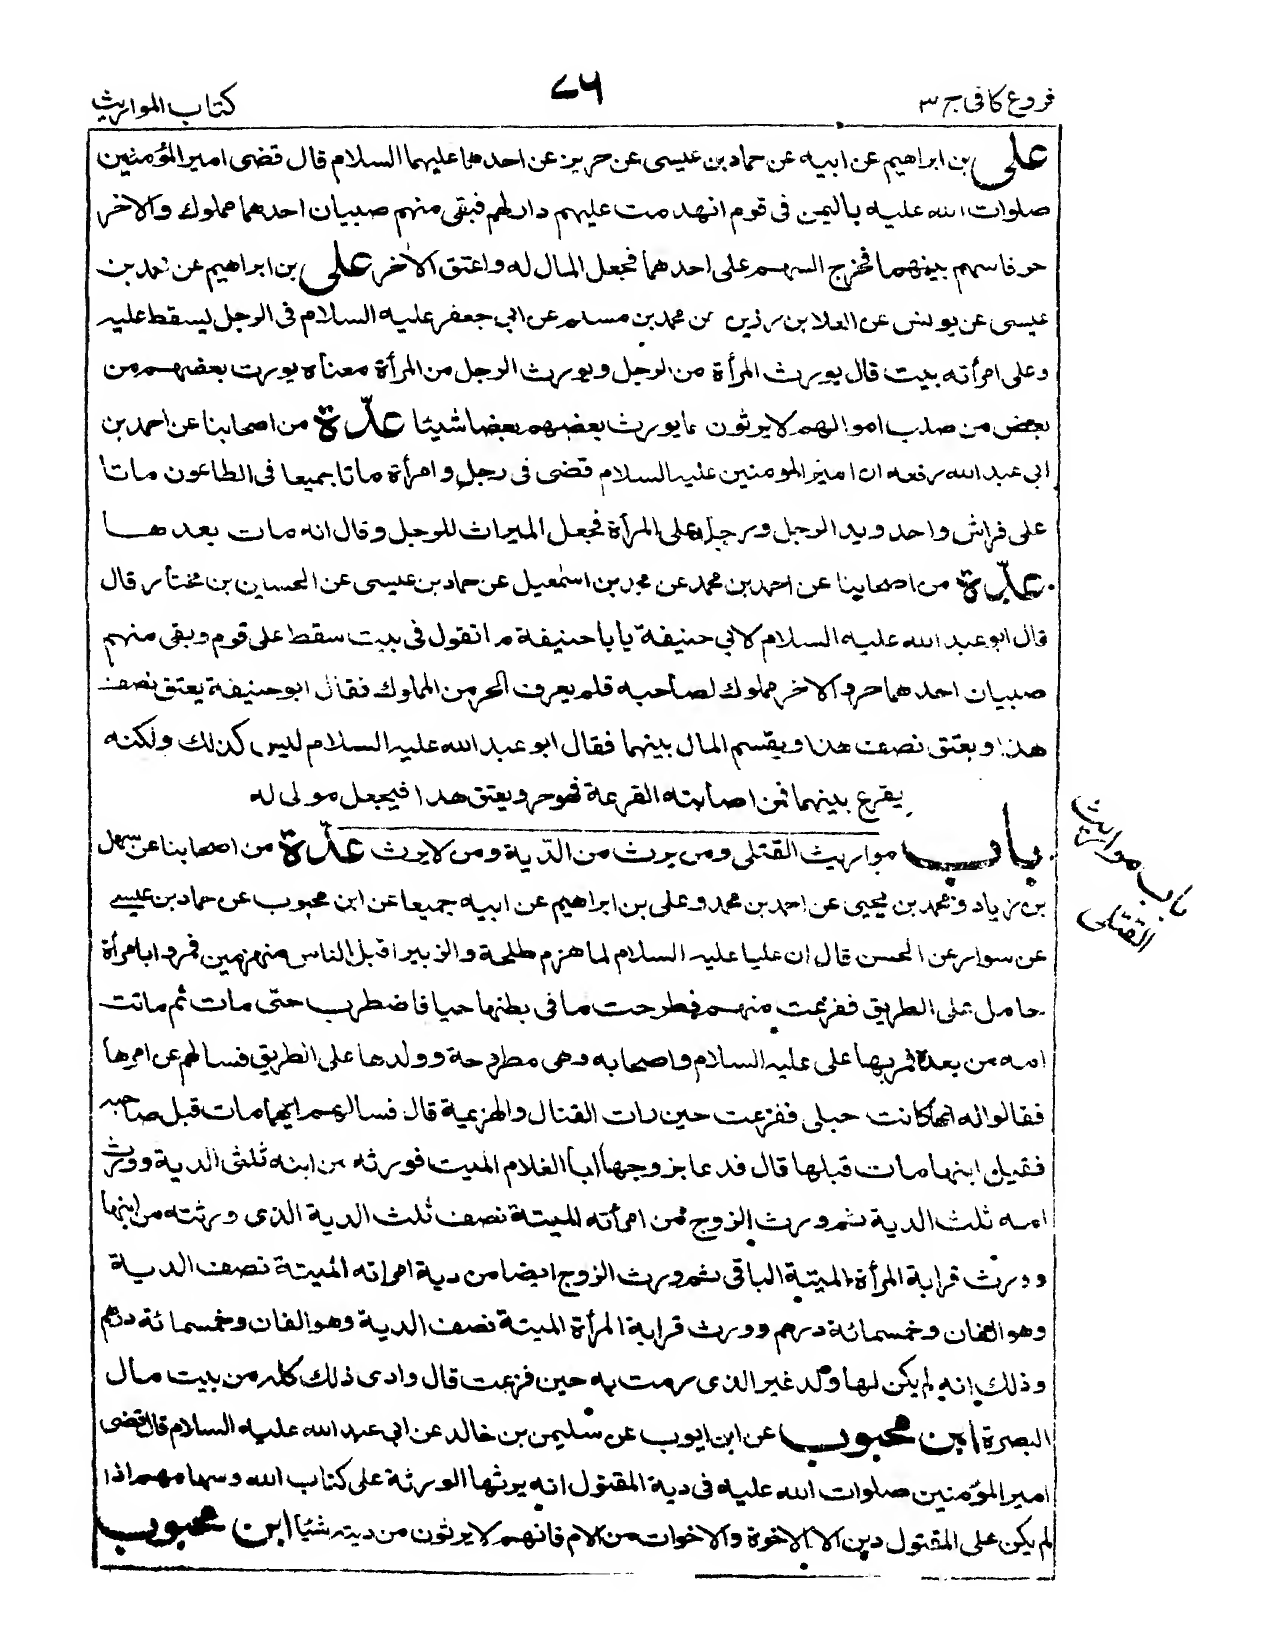 فروع كافى ج ٣
٧٦
كتاب المواريث
على بن ابراهيم عن ابيه عن حماد بن عيسى عن حريز عن احدهما عليهما السلام قال قضى امير المؤمنين
صلوات الله عليه باليمن فى قوم انهدمت عليهم دار لهم فبقى منهم صبيان احدهما مملوك والآخر
حر فاسهم بينهما فخرج السهم على احدهما فجعل المال له واعتق الآخر على بن ابراهيم عن محمد بن
عيسى عن يونس عن العلا بن رزين عن محمد بن مسلم عن ابى جعفر عليه السلام فى الرجل يسقط عليه
وعلى امرأته بيت قال يورث المرأة من الرجل ويورث الرجل من المرأة معناه يورث بعضهم من
بعض من صلب اموالهم لا يرثون مما يورث بعضهم بعضا شيئا عدّة من اصحابنا عن احمد بن
ابى عبد الله رفعه ان امير المومنين عليه السلام قضى فى رجل و امرأة ماتا جميعا فى الطاعون ماتا
على فراش واحد ويد الرجل ورجله على المرأة فجعل الميراث للرجل وقال انه مات بعدها
عدّة من اصحابنا عن احمد بن محمد عن محمد بن اسمعيل عن حماد بن عيسى عن الحسين بن مختار قال
قال ابو عبد الله عليه السلام لابى حنيفة يا با حنيفة ما تقول فى بيت سقط على قوم وبقى منهم
صبيان احدهما حر والآخر مملوك لصاحبه فلم يعرف الحر من المملوك فقال ابو حنيفة يعتق نصف
هذا ويعتق نصف هذا ويقسم المال بينهما فقال ابو عبد الله عليه السلام ليس كذلك ولكنه
يقرع بينهما فمن اصابته القرعة فهو حر ويعتق هذا فيجعل مولى له
باب مواريث القتلى ومن يرث من الدّية ومن لا يرث عدّة من اصحابنا عن سهل
بن زياد و محمد بن يحيى عن احمد بن محمد وعلى بن ابراهيم عن ابيه جميعا عن ابن محبوب عن حماد بن عيسى
عن سوار عن الحسن قال ان عليا عليه السلام لما هزم طلحة والزبير اقبل الناس منهزمين فمروا بامرأة
حامل على الطريق ففزعت منهم فطرحت ما فى بطنها حيا فاضطرب حتى مات ثم ماتت
امه من بعده فمر بها على عليه السلام واصحابه وهى مطروحة وولدها على الطريق فسالهم عن امرها
فقالوا له انها كانت حبلى ففزعت حين رات القتال والهزيمة قال فسالهم ايهما مات قبل صاحبه
فقيل ابنها مات قبلها قال فدعا بزوجها ابا الغلام الميت فورثه من ابنه ثلثى الدية وورث
امه ثلث الدية ثم ورث الزوج من امرأته الميتة نصف ثلث الدية الذى ورثته من ابنها
وورث قرابة المرأة الميتة الباقى ثم ورث الزوج ايضا من دية امراته الميتة نصف الدية
وهو الفان وخمسمائة درهم وورث قرابة المرأة الميتة نصف الدية وهو الفان وخمسمائة درهم
وذلك انه لم يكن لها ولد غير الذى رمت به حين فزعت قال وادى ذلك كله من بيت مال
البصرة ابن محبوب عن ابن ايوب عن سليمن بن خالد عن ابى عبد الله عليه السلام قال قضى
امير المؤمنين صلوات الله عليه فى دية المقتول انه يرثها الورثة على كتاب الله وسهامهم اذا
لم يكن على المقتول دين الا الاخوة والاخوات من الام فانهم لا يرثون من ديته شيئا ابن محبوب
باب مواريث
القتلى